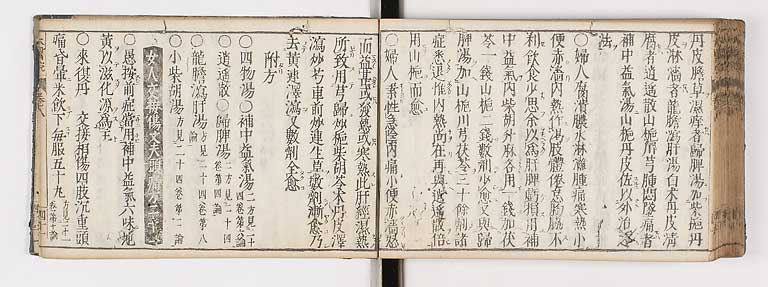 丹皮膽草濕痒者歸脾湯加梔丹
皮淋濇者龍膽瀉肝湯白朮丹皮潰
腐者逍遙散山梔川芎腫悶墜痛者
補中益氣湯山梔丹皮佐以外治之
法
○婦人腐潰膿水淋濇腫痛寒熱小
便赤濇内熱作渴肢體倦怠胸脇不
利飲食少思余以爲肝脾虧損用補
中益氣内柴胡升麻各用一錢加茯
苓一錢山梔二錢數劑少愈又與歸
脾湯加山梔川芎茯苓三十餘劑諸
症悉退惟内熱尚在再與逍遙散倍
用山梔而愈
○婦人素性急陰内痛小便赤濇怒
而益甚或發熱或寒熱此肝經濕熱
所致用芎歸炒梔柴胡苓朮丹皮澤
瀉炒芍車前炒連生草數劑漸愈乃
去黃連澤瀉又數劑全愈
附方
○四物湯 ○補中益氣湯
○逍遙散 ○歸脾湯
○龍膽瀉肝湯
○小柴胡湯
女人交接傷丈夫頭痛
○愚按前症當用補中益氣六味地
黃以滋化源爲主
○來復丹 交接相傷四肢沉重頭
痛昏暈米飲下每服五十丸